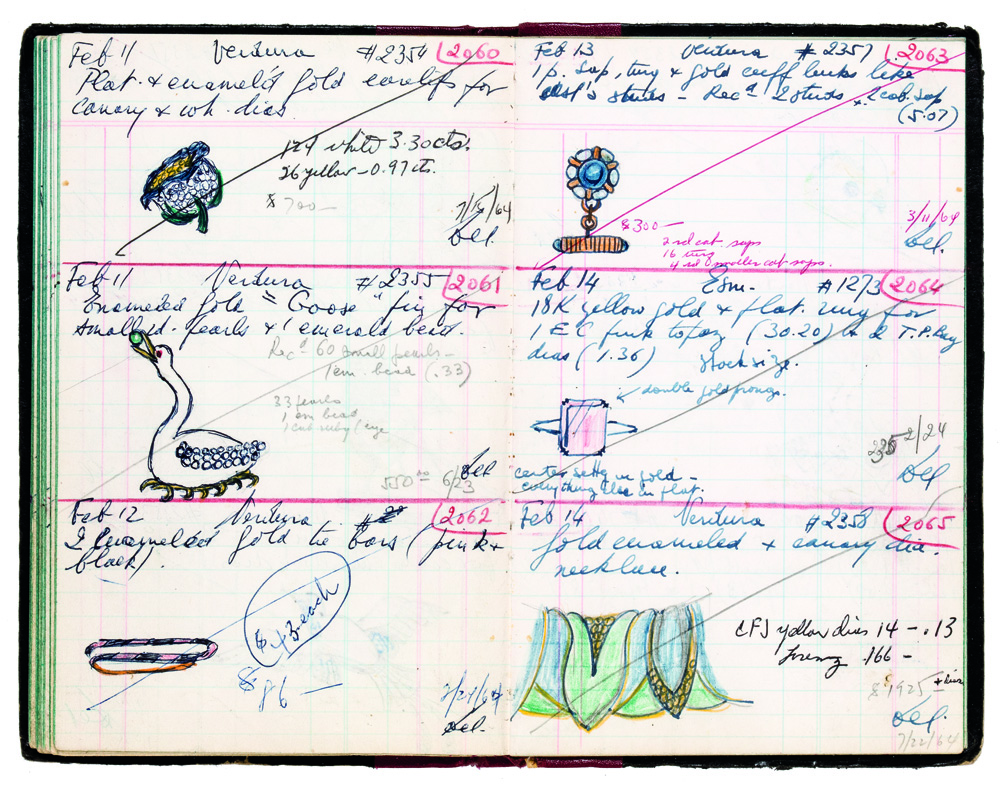 Feb 11 Ventura #2354 2060
Plat. & enameled gold earclips for
canary & wh. dias
129 white 3.30cts.
26 yellow - 0.97 cts.
$ 700—
7/15/64
Del.
Feb 11 Ventura #2355 2061
Enameled gold "Goose" pin for
small pearls & 1 emerald bead.
Rec'd 60 small pearls -
1 em. bead (.33)
33 pearls
1 em bead
1 cab ruby / eye
550.00 6/23
Del
Feb 12 Ventura 2062
2 Enameled gold tie bars (pink &
black).
$43 each
$86 —
2/24/64
Del.
Feb 13 Ventura #2357 2063
1 p. sap, turq & gold cuff links like
studs - Rec'd 2 studs & 2 cab. sap
(5.07)
$300—
2 rd cab saps
16 turq
4 rd smaller cab saps.
3/11/64
Del.
Feb 14 Esm. #1273 2064
18K yellow gold & plat. ring for
1 EC pink topaz (30.20) & 2 T.P. Bag
dias (1.36) stock size.
double gold prongs
center setting in gold -
everything else in plat.
2/24
Del
Feb 14 Ventura #2358 2065
Gold enameled & canary dia.
necklace.
CFJ yellow dias 14 - .13
166 -
$1925 + dias
Del.
7/22/64